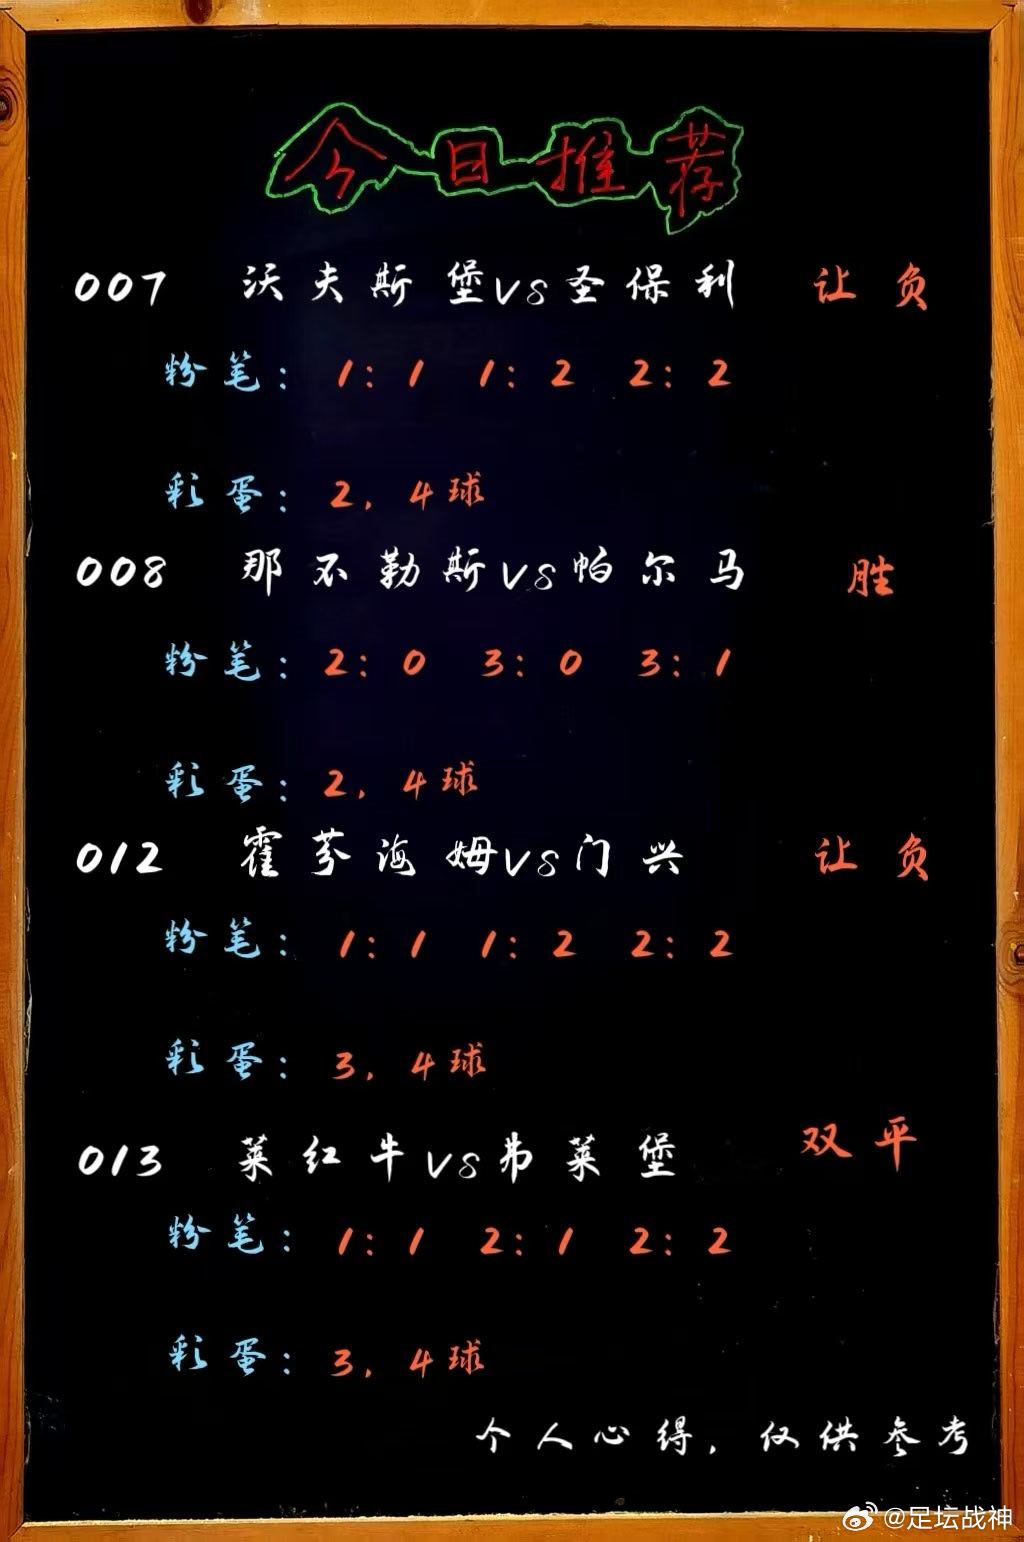 今日推荐
007 沃夫斯堡vs圣保利 让负
粉笔：1:1 1:2 2:2
彩蛋：2，4球
008 那不勒斯vs帕尔马 胜
粉笔：2:0 3:0 3:1
彩蛋：2，4球
012 霍芬海姆vs门兴 让负
粉笔：1:1 1:2 2:2
彩蛋：3，4球
013 莱红牛vs弗莱堡 双平
粉笔：1:1 2:1 2:2
彩蛋：3，4球
个人心得，仅供参考
@足坛战神